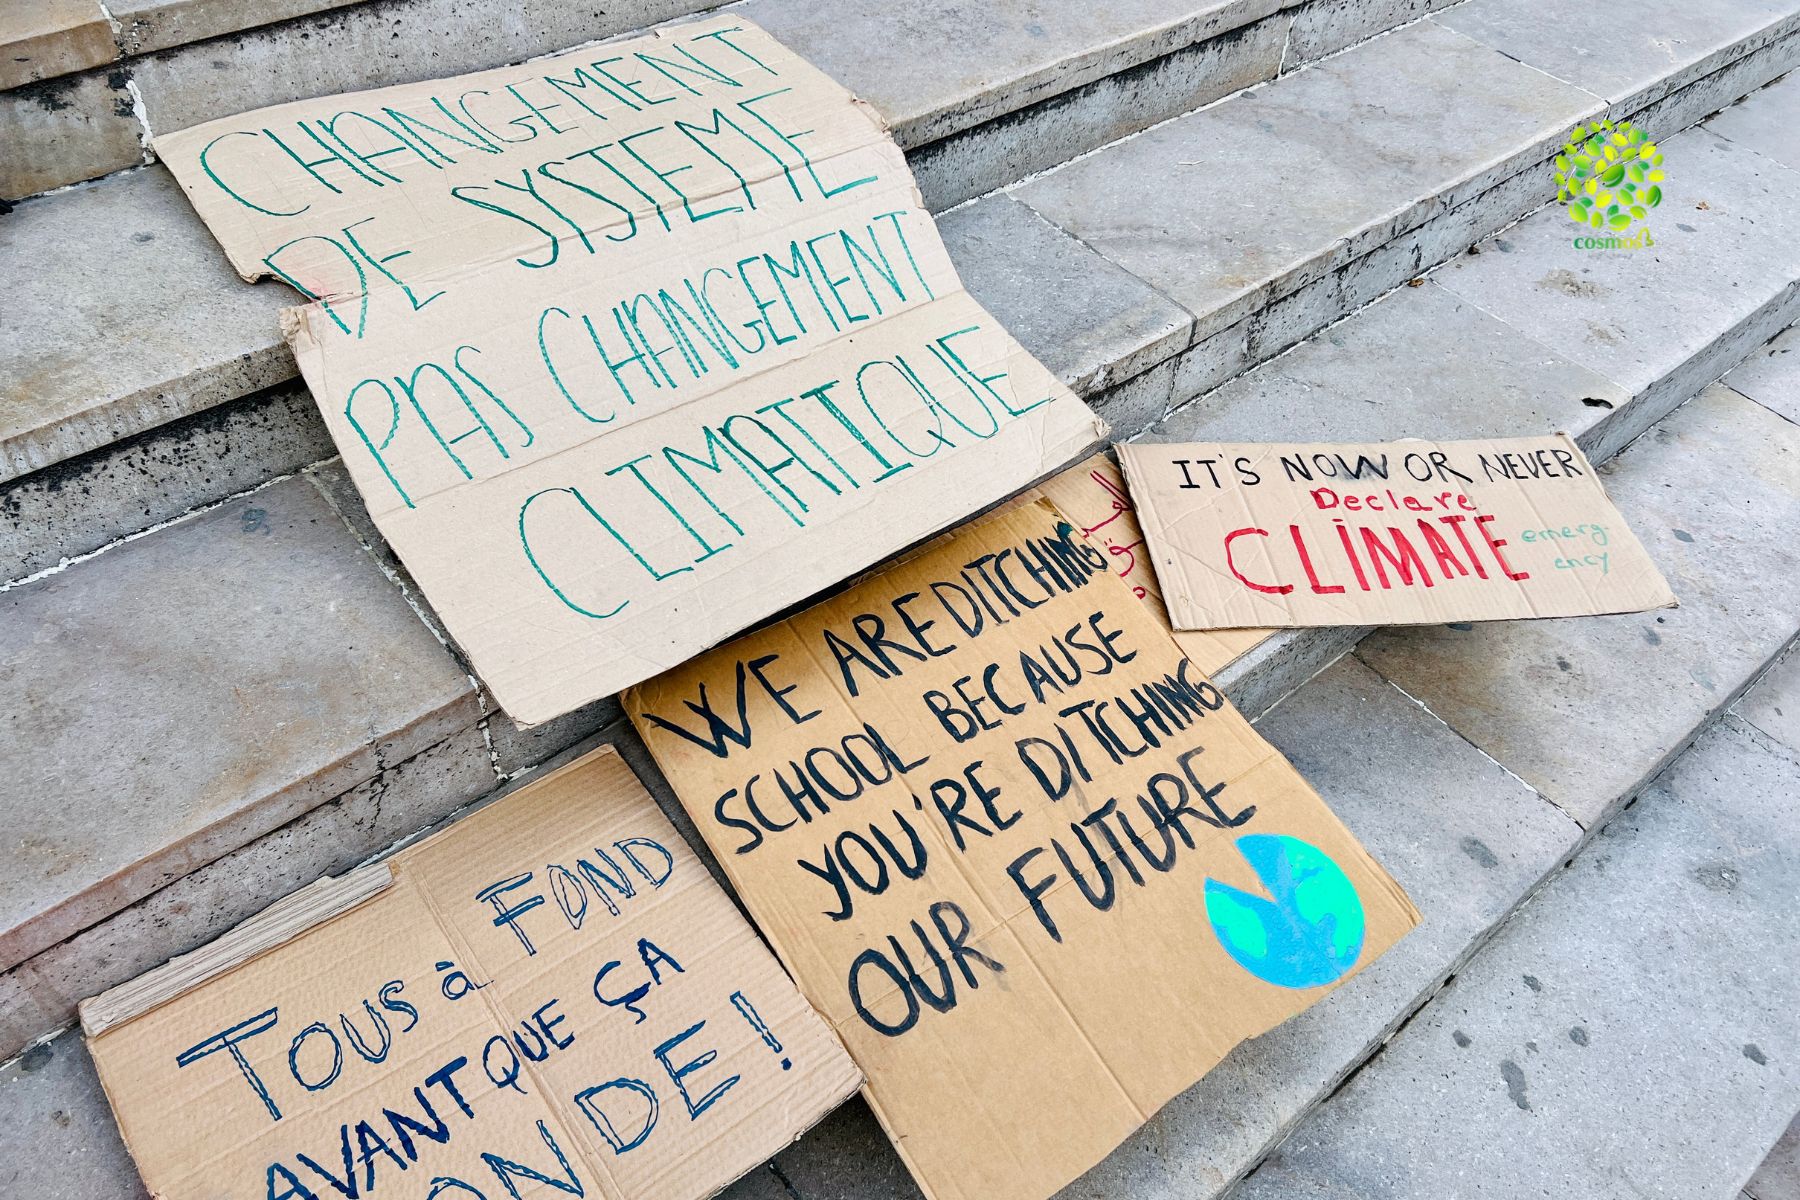 CHANGEMENT
DE SYSTEME
PAS CHANGEMENT
CLIMATIQUE
IT'S NOW OR NEVER
Declare
CLIMATE emerg-
ency
WE ARE DITCHING
SCHOOL BECAUSE
YOU'RE DITCHING
OUR FUTURE
TOUS à FOND
AVANT QUE ÇA
ONDE!
cosmos